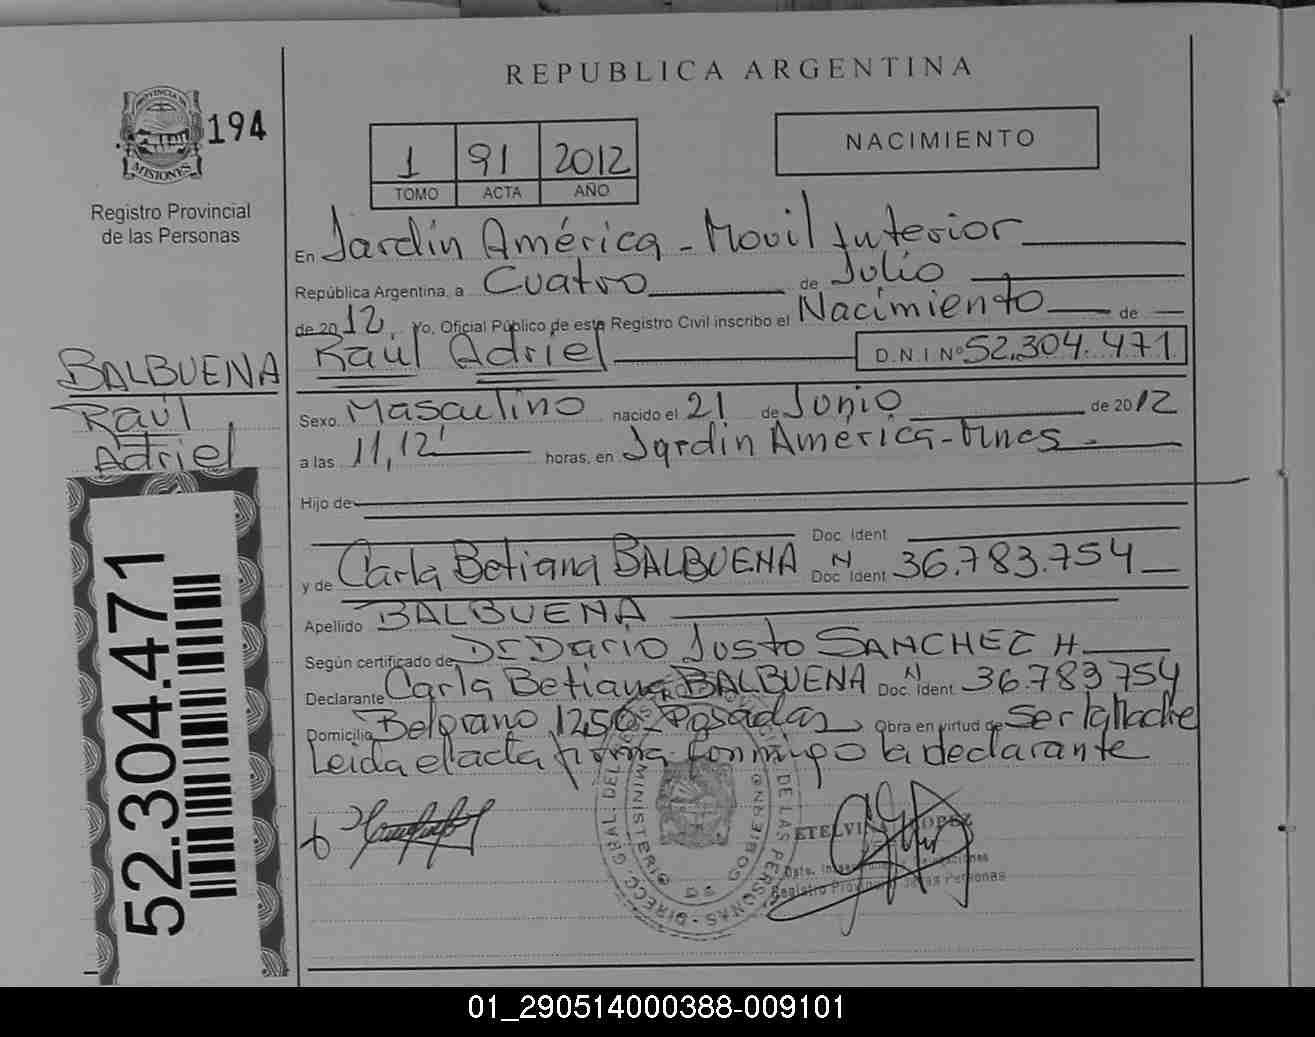 REPUBLICA ARGENTINA
PROVINCIA DE
MISIONES
194
Registro Provincial
de las Personas
1 91 2012
TOMO ACTA AÑO
NACIMIENTO
En Jardín América - Movil Interior
República Argentina, a Cuatro de Julio
de 2012, yo, Oficial Público de este Registro Civil inscribo el Nacimiento de
Raúl Adriel D.N.I Nº 52.304.471
BALBUENA
Raúl
Adriel
Sexo Masculino nacido el 21 de Junio de 2012
a las 11,12' horas, en Jardín América - Mnes -
Hijo de
Doc. Ident
y de Carla Betiana BALBUENA Doc. Ident N 36.783.754
Apellido BALBUENA
Según certificado de Dr Dario Justo SANCHEZ H.
Declarante Carla Betiana BALBUENA Doc. Ident N 36.783754
Domicilio Belgrano 1250 Posadas Obra en virtud de Ser la Madre
Leida el acta firma conmigo la declarante
52.304.471
DIRECC. GRAL. DEL DE LAS PERSONAS
MINISTERIO DE GOBIERNO
ETELVI LOPEZ
Registro Provincial de las Personas
01_290514000388-009101